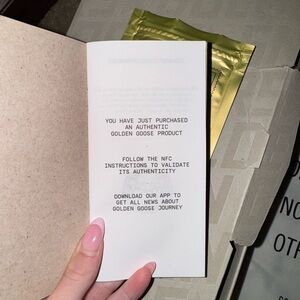 YOU HAVE JUST PURCHASED
AN AUTHENTIC
GOLDEN GOOSE PRODUCT
FOLLOW THE NFC
INSTRUCTIONS TO VALIDATE
ITS AUTHENTICITY
DOWNLOAD OUR APP TO
GET ALL NEWS ABOUT
GOLDEN GOOSE JOURNEY
NO
OT